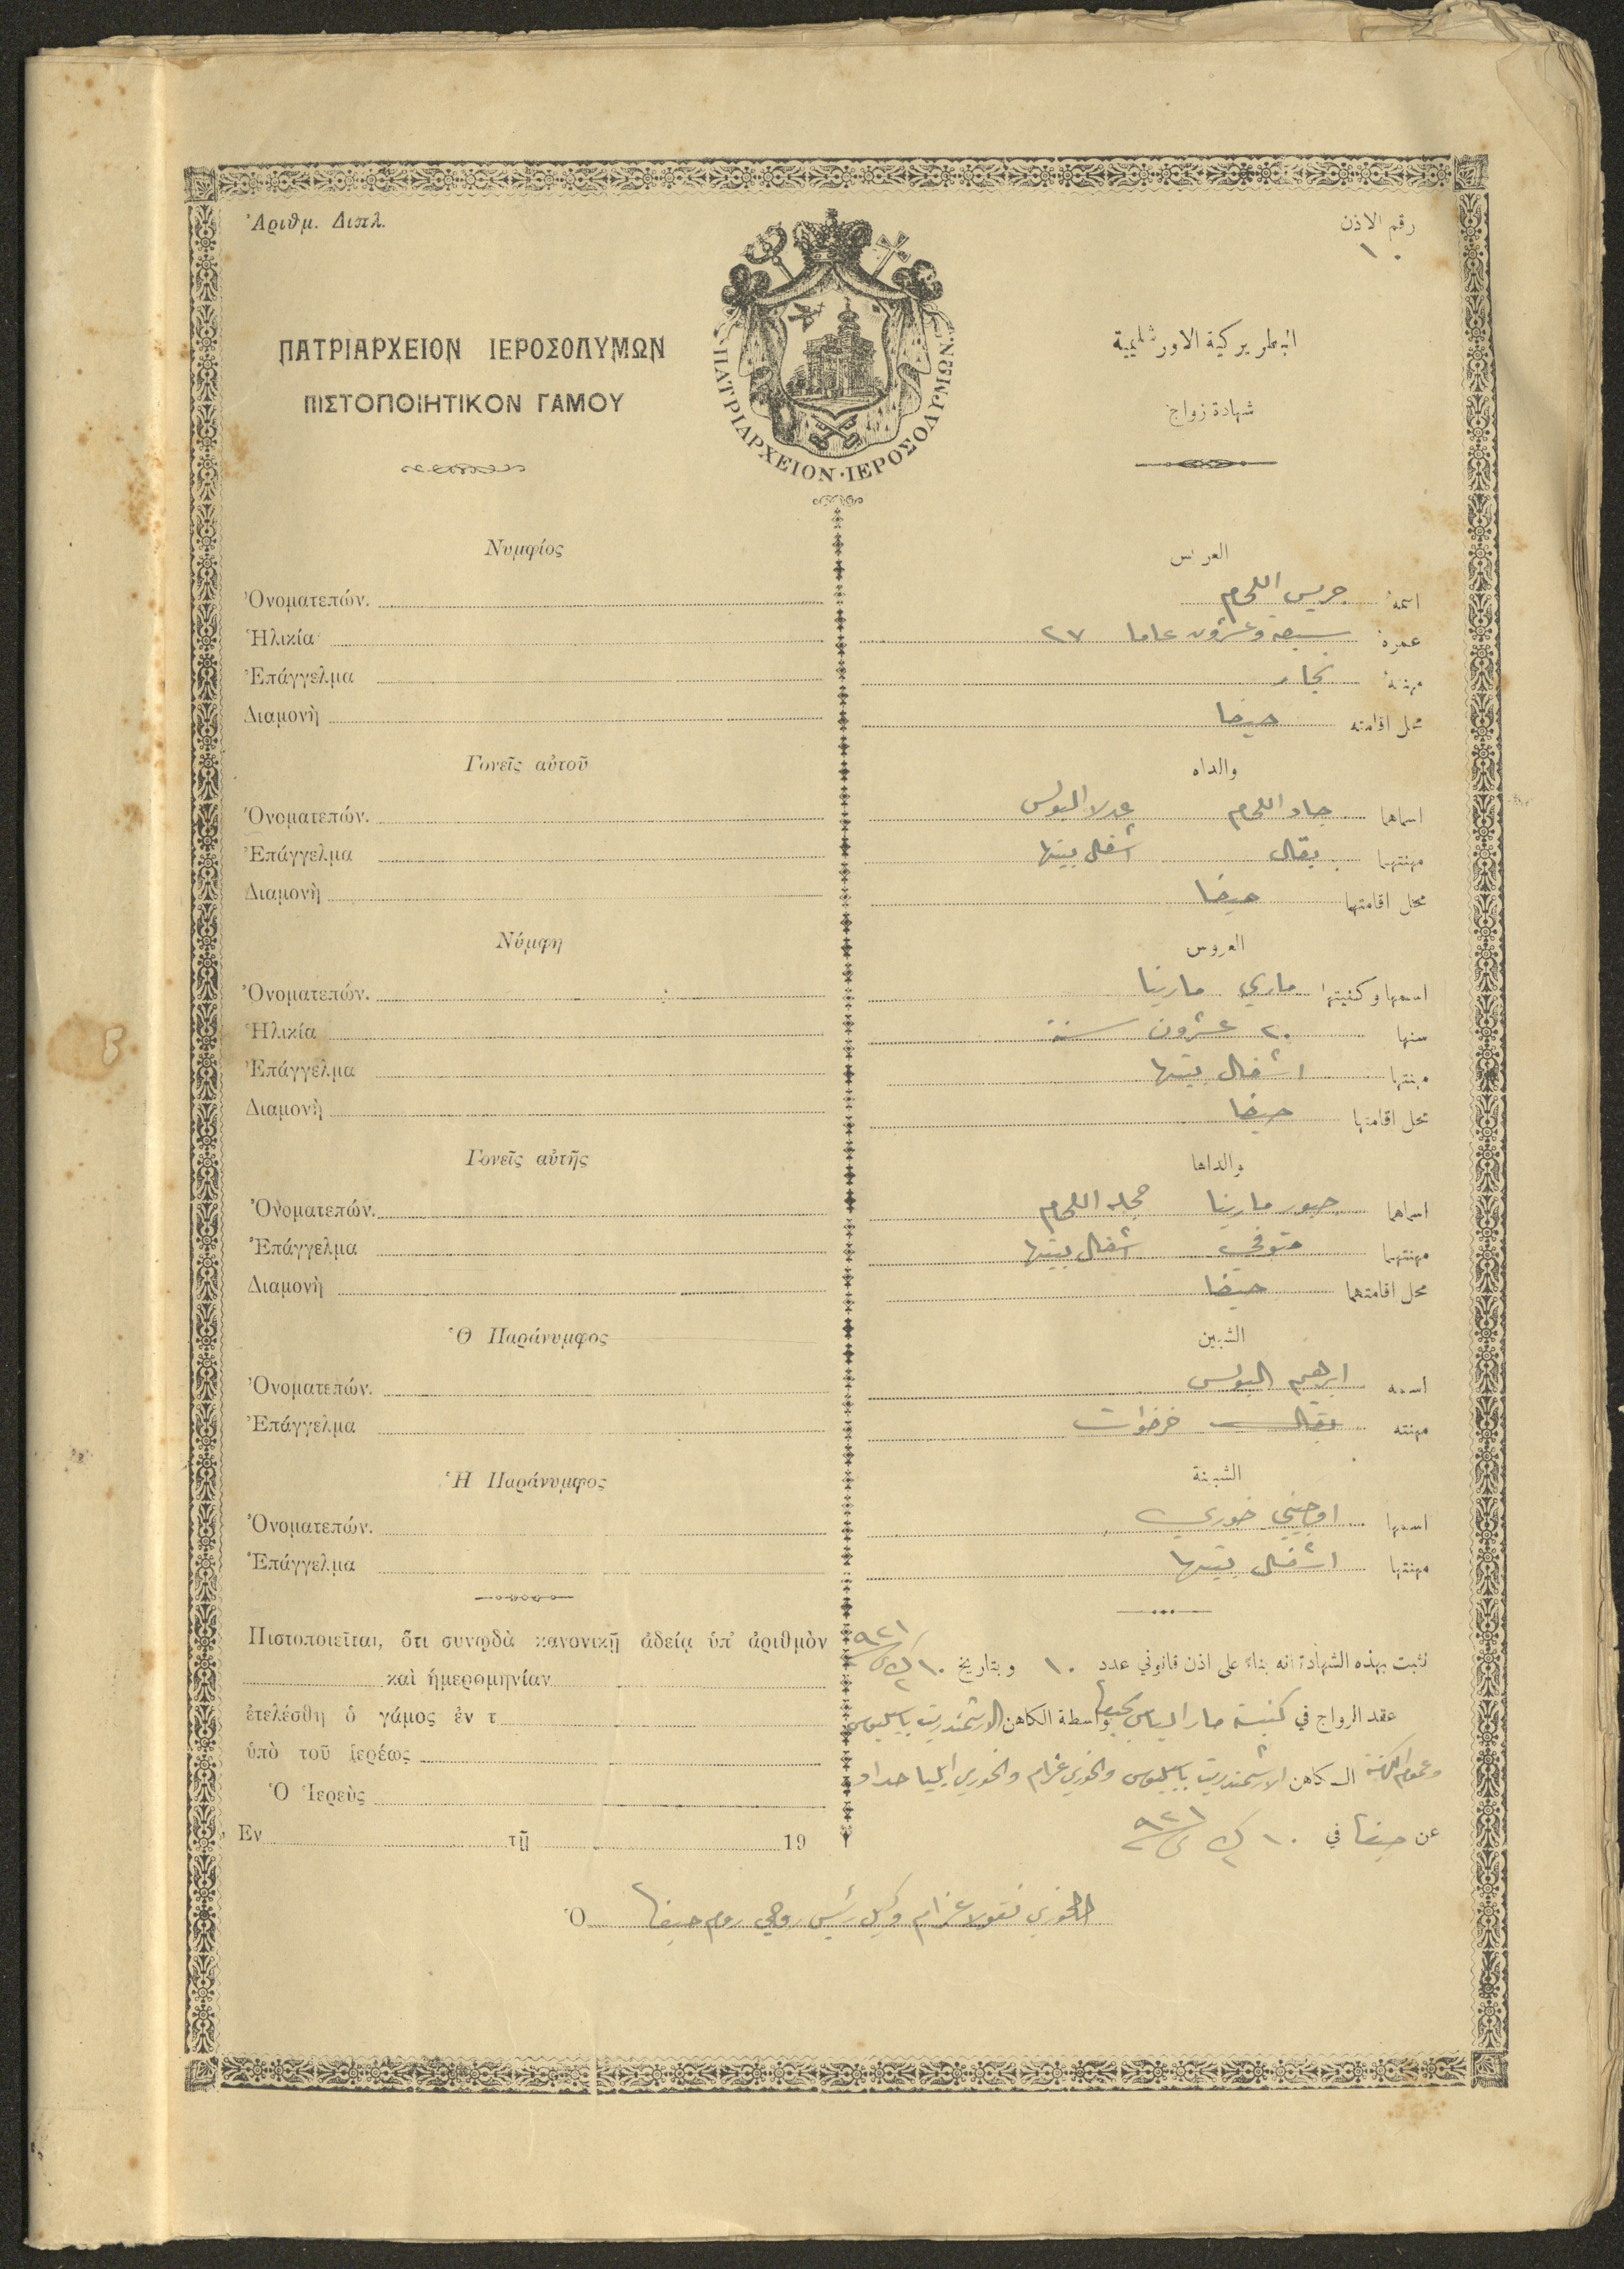 Ἀριθμ. Διπλ.
رقم الاذن
١٠
ΠΑΤΡΙΑΡΧΕΙΟΝ ΙΕΡΟΣΟΛΥΜΩΝ
ΠΙΣΤΟΠΟΙΗΤΙΚΟΝ ΓΑΜΟΥ
ΠΑΤΡΙΑΡΧΕΙΟΝ·ΙΕΡΟΣΟΛΥΜΩΝ
البطريركية الاورشليمية
شهادة زواج
Νυμφίος
Ὀνοματεπών.
Ἡλικία
Ἐπάγγελμα
Διαμονὴ
Γονεῖς αὐτοῦ
Ὀνοματεπών.
Ἐπάγγελμα
Διαμονὴ
Νύμφη
Ὀνοματεπών.
Ἡλικία
Ἐπάγγελμα
Διαμονὴ
Γονεῖς αὐτῆς
Ὀνοματεπών.
Ἐπάγγελμα
Διαμονὴ
Ὁ Παράνυμφος
Ὀνοματεπών.
Ἐπάγγελμα
Ἡ Παράνυμφος
Ὀνοματεπών.
Ἐπάγγελμα
Πιστοποιεῖται, ὅτι συνῳδὰ κανονικῇ ἀδείᾳ ὑπ' ἀριθμὸν
καὶ ἡμερομηνίαν
ἐτελέσθη ὁ γάμος ἐν τ
ὑπὸ τοῦ ἱερέως
Ὁ Ἱερεὺς
Ἐν τῇ 19
العريس
اسمه جريس اللحام
عمره سبعة وعشرون عاما ٢٧
مهنته نجار
محل اقامته حيفا
والداه
اسماهما جاد اللحام عدلا البولس
مهنتهما بقال اشغال بيتها
محل اقامتهما حيفا
العروس
اسمها وكنيتها ماري مارينا
سنها ٢٠ عشرون سنة
مهنتها اشغال بيتها
محل اقامتها حيفا
والداها
اسماهما جبور مارينا اللحام
مهنتهما متوفي اشغال بيتها
محل اقامتهما حيفا
الشبين
اسمه ابرهيم البولس
مهنته بقال خرضوات
الشبينة
اسمها اوجيني خوري
مهنتها اشغال بيتها
نثبت بهذه الشهادة انه بناء على اذن قانوني عدد ١٠ وبتاريخ ١٠ ك٢ ٩٢١
عقد الزواج في كنيسة مار الياس بحيفا بواسطة الكاهن الارشمندريت باسيليوس
وعموم الكهنة الكاهن الارشمندريت باسيليوس والخوري عزام والخوري ايليا حداد
عن حيفا في ١٠ ك٢ ٩٢١
Ὁ الخوري نقولا عزام وكيل رئيس روحي روم حيفا